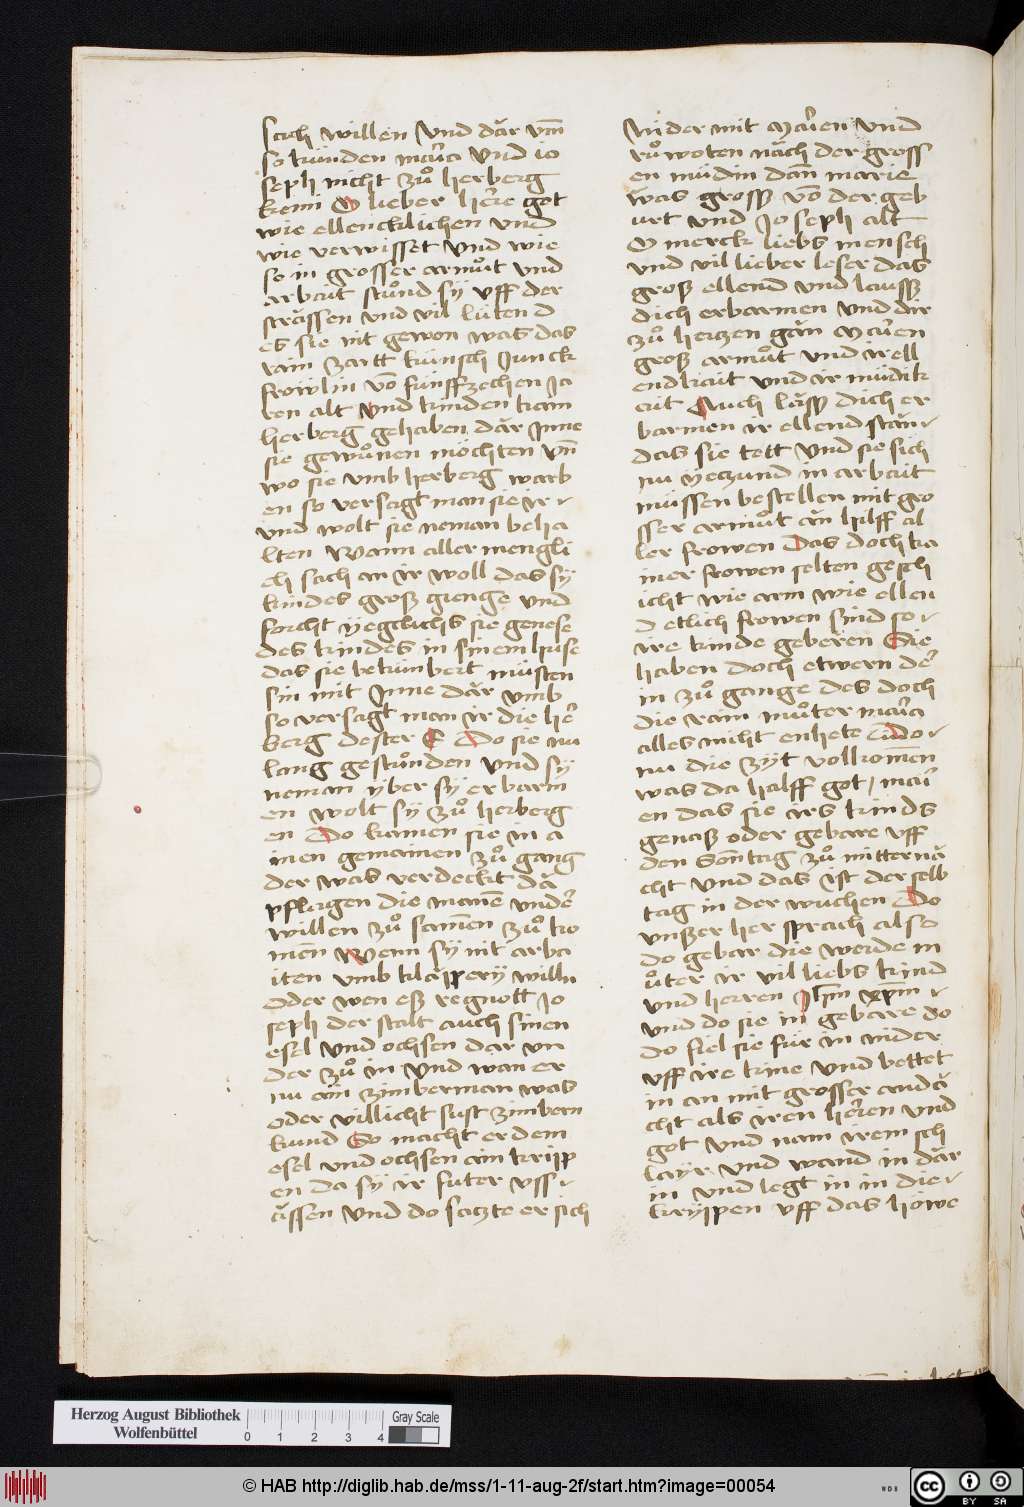 sach willen Vnd dăr vm̄
so kúnden mar̄ia Vnd io
seph nicht zů herberg
kem̄ O lieber her̄re got
wie ellencklichen vnd
wie verwisset Vnd wie
so in grosser armůt vnd
arbait stůnd sÿ vff der
străssen vnd vil lúten d
es sie nit gewon was das
rain zartt kúnsch Junck
frowlin võ fúnffzechen Ja
ren alt Vnd kinden kain
herberg gehaben dăr Jnne
sie gewůnen mőchten Vn̄
wo sie vmb herberg warb
en so versagt man sie ir
vnd wolt sie neman beha
lten Wann aller mengli
ch sach an ir woll das sÿ
kindes groß gienge vnd
forcht ÿegclichs sie genese
des kindes in sinem huse
das sie bekúmbert músten
sin mit Jnne dăr vmb
so versagt man ir die he͂r
berg dester E Do sie nu
lang gestůnden Vnd sÿ
neman ÿber sÿ erbarm
en wolt sÿ zů herberg
en Do kamen sie in a
inen gemainen zů gang
der was verdeckt dă
pflagen die man̄e vnde͂r
willen zů sam̄en zů ko
men Wenn sÿ nit arba
iten vmb klăppery willn
oder wen eß regnott Jo
seph der stalt auch sinen
esel Vnd ochsen dar vn
der zů in Vnd wan er
nu ain zimberman was
oder villicht sust zimbern
kund So macht er dem
esel vnd ochsen ain kripp
en da sÿ ir futer vss
ăssen Vnd do saczte er sich
Nider mit Mar̄ien vnd
růwoten năch der gross
en műdin dan̄ marie
was grosß võ der geb
urt vnd Joseph alt
O merck liebs mensch
vnd vil lieber leser das
groß ellend vnd lausß
dich erbarmen vnd dir
zů hertzen găn Mar̄ien
groß armůt vnd ir ell
endkait vnd ir műdik
ait Auch lăsß dich er
barmen ir ellend stăn
das sie tett Vnd sie sich
nu ÿeczund in arbait
műssen bestellen mit gro
sser armůt ăn hilff al
ler frowen Das doch ka
iner frowen selten gesch
icht wie arm wie ellen
d etlich frowen sind so
ire kinde geberen Die
haben doch etwern de͂r
in zů gange des doch
die rain můter mar̄ia
alles niht enhete Do
nu die zÿt vollkomen
was da halff got mar̄i
en das sie irs kinds
genaß oder gebare vff
den Sonntag zů mitternă
cht vnd das ist der selb
tag in der wuchen Do
vnßer her sprach also
do gebar die werde m
ůter ir vil liebs kind
vnd herren Jhm̄ xp̄m
vnd do sie in gebăre do
do fiel sie fúr in nider
vff ire knie Vnd bettet
in an mit grosser andă
cht als iren her̄ren vnd
got vnd nam irem sch
layr vnd wand in dăr
in vnd legt in in die
krÿppen vff das hőwe
Herzog August Bibliothek
Wolfenbüttel
0 1 2 3 4
Gray Scale
© HAB http://diglib.hab.de/mss/1-11-aug-2f/start.htm?image=00054
WDB
cc BY SA